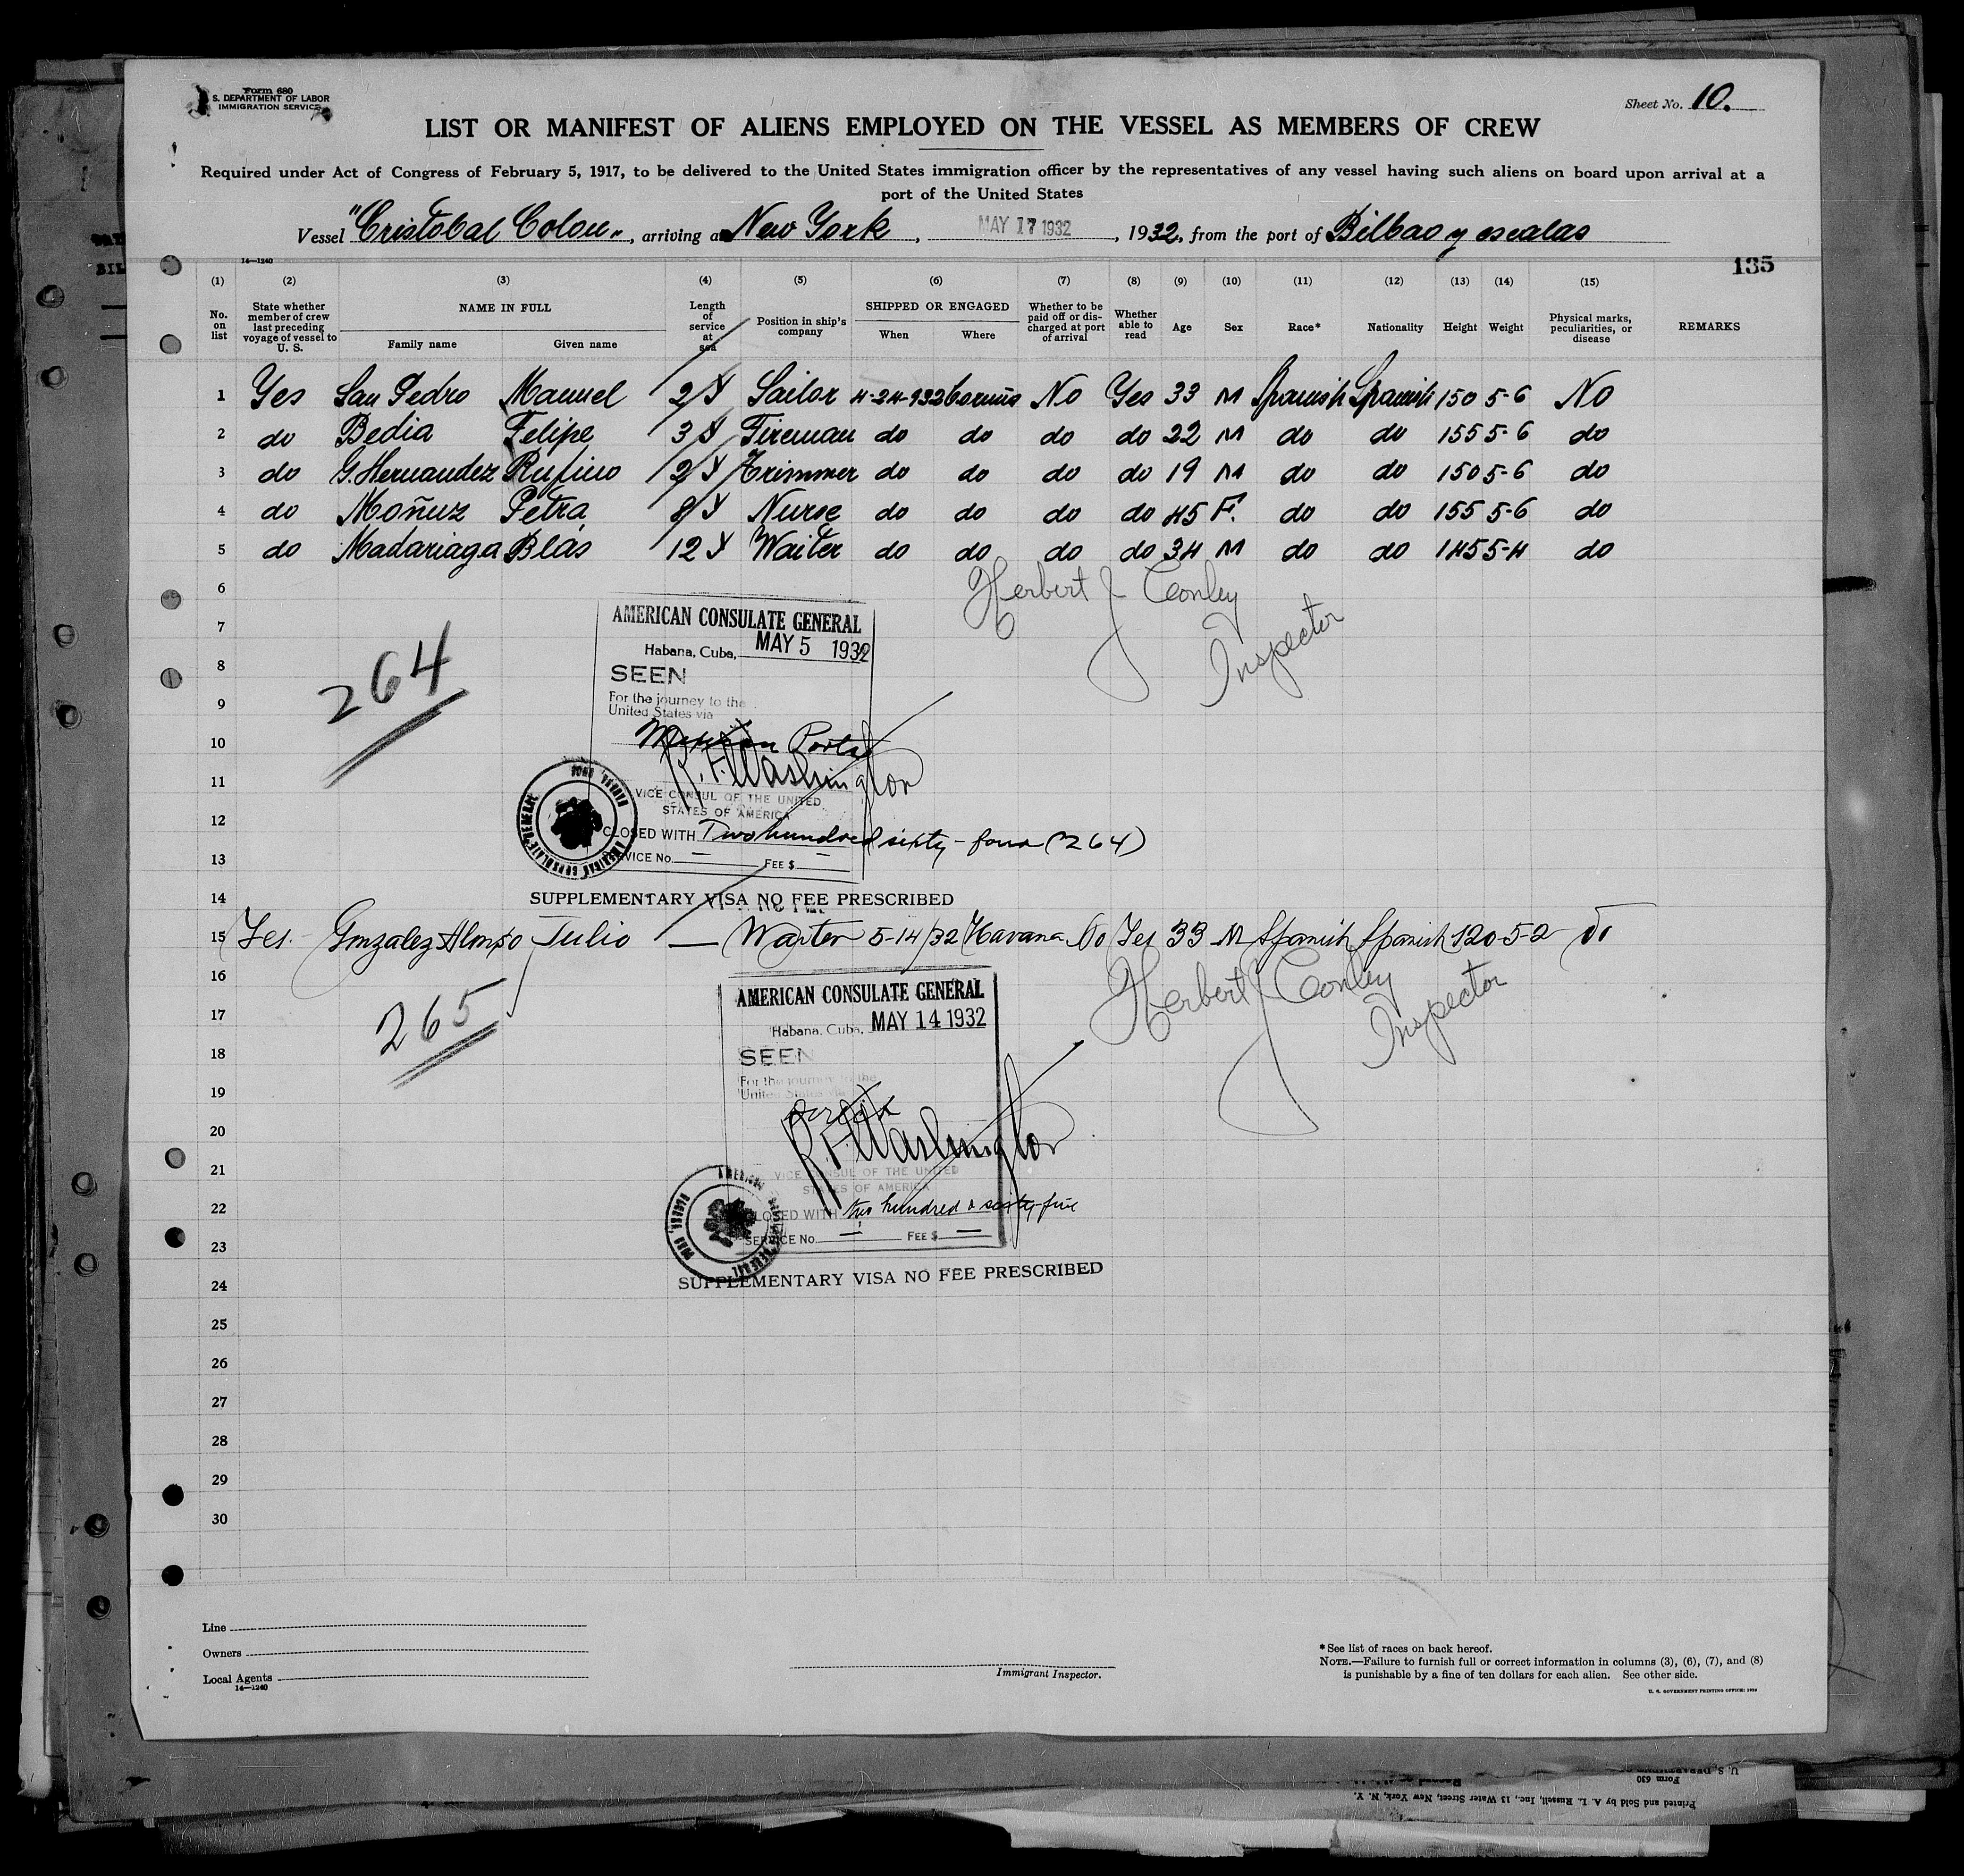 Form 680
S. DEPARTMENT OF LABOR
IMMIGRATION SERVICE
Sheet No. 10.
LIST OR MANIFEST OF ALIENS EMPLOYED ON THE VESSEL AS MEMBERS OF CREW
Required under Act of Congress of February 5, 1917, to be delivered to the United States immigration officer by the representatives of any vessel having such aliens on board upon arrival at a
port of the United States
Vessel "Cristobal Colon", arriving at New York, MAY 17 1932, 1932, from the port of Bilbao y escalas
14—1240
135
(1) (2) (3) (4) (5) (6) (7) (8) (9) (10) (11) (12) (13) (14) (15)
No. on list State whether member of crew last preceding voyage of vessel to U. S. NAME IN FULL Family name Given name Length of service at sea Position in ship's company SHIPPED OR ENGAGED When Where Whether to be paid off or discharged at port of arrival Whether able to read Age Sex Race* Nationality Height Weight Physical marks, peculiarities, or disease REMARKS
1 Yes San Pedro Manuel 2 Y Sailor 4-24-932 Coruña No Yes 33 M Spanish Spanish 150 5-6 No
2 do Bedia Felipe 3 Y Fireman do do do do 22 M do do 155 5-6 do
3 do G. Hernandez Rufino 2 Y Trimmer do do do do 19 M do do 150 5-6 do
4 do Moñuz Petra 8 Y Nurse do do do do 45 F. do do 155 5-6 do
5 do Madariaga Blas 12 Y Waiter do do do do 34 M do do 145 5-4 do
6
Herbert J Conley
Inspector
7
8
9
10
11
12
13
14
264
AMERICAN CONSULATE GENERAL
Habana, Cuba, MAY 5 1932
SEEN
For the journey to the
United States via
Mexican Ports
R. F. Washington
VICE CONSUL OF THE UNITED
STATES OF AMERICA
CLOSED WITH Two hundred sixty-four (264)
SERVICE No. — FEE $ —
SUPPLEMENTARY VISA NO FEE PRESCRIBED
15 Yes. Gonzalez Alonso Julio — Waiter 5-14/32 Havana No Yes 33 M Spanish Spanish 120-5-2
16
Herbert J Conley
Inspector
17
18
19
20
21
22
23
24
265
AMERICAN CONSULATE GENERAL
Habana, Cuba, MAY 14 1932
SEEN
For the journey to the
United States
direct
R. F. Washington
VICE CONSUL OF THE UNITED
STATES OF AMERICA
CLOSED WITH two hundred & sixty-five
SERVICE No. — FEE $ —
SUPPLEMENTARY VISA NO FEE PRESCRIBED
25
26
27
28
29
30
Line
Owners
Local Agents
14—1240
Immigrant Inspector.
* See list of races on back hereof.
NOTE.—Failure to furnish full or correct information in columns (3), (6), (7), and (8)
is punishable by a fine of ten dollars for each alien. See other side.
U. S. GOVERNMENT PRINTING OFFICE:
Form 630
Printed and Sold by A. L. Russell, Inc., 13 Water Street, New York, N. Y.